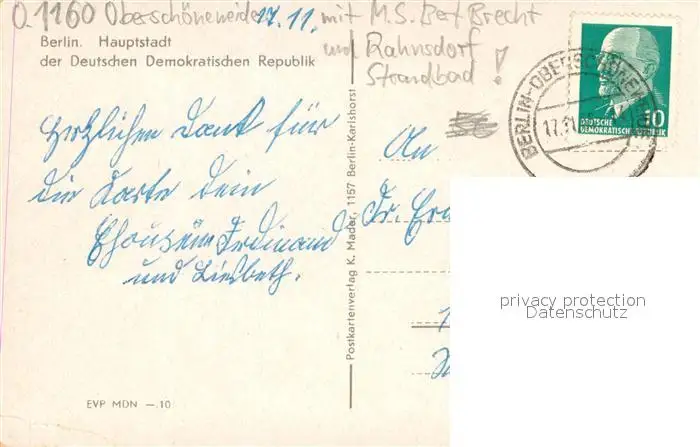 O.1160 Oberschöneweide 17.11. mit M.S. Bert Brecht
und Rahnsdorf
Strandbad!
Berlin. Hauptstadt
der Deutschen Demokratischen Republik
Herzlichen Dank für
die Karte Dein
Ferdinand
und Liesbeth.
EVP MDN —.10
Postkartenverlag K. Mader, 1157 Berlin-Karlshorst
BERLIN-OBERSCHÖNEWEIDE
17.11
10
DEUTSCHE
DEMOKRATISCHE REPUBLIK
An
privacy protection
Datenschutz